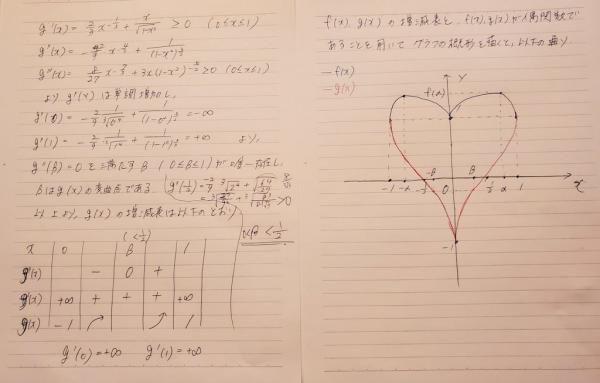 g'(x) = 2/3 x^{-1/3} + x/√(1-x²) ≥ 0 (0≤x≤1)
g''(x) = -2/9 x^{-4/3} + 1/(1-x²)^{3/2}
g'''(x) = 8/27 x^{-7/3} + 3x(1-x²)^{-5/2} ≥ 0 (0≤x≤1)
より g''(x) は単調増加し,
g''(0) = -2/9 1/∛0⁴ + 1/(1-0²)^{3/2} = -∞
g''(1) = -2/9 1/∛1⁴ + 1/(1-1²)^{3/2} = +∞ より,
g''(β) = 0 を満たす β (0≤β≤1) が唯一存在し,
βはg(x)の変曲点である
>0
以上より, g(x) の増減表は以下のとおり
0<β<1/2
(<1/2)
x 0 β 1
g''(x) - 0 +
g'(x) +∞ + + + +∞
g(x) -1 1
g'(0) = +∞ g'(1) = +∞
f(x), g(x) の増減表と, f(x), g(x) が偶関数で
あることを用いて グラフの概形を描くと, 以下の通り
-f(x)
-g(x)
y
f(α)
-1 -α -1/2 -β 0 β 1/2 α 1 x
-1